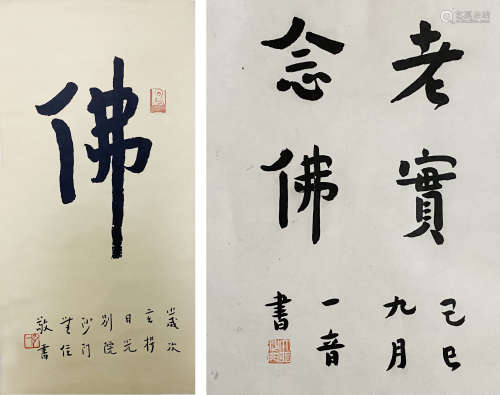 佛
歲次
玄枵
日光
別院
沙門
敬書
老實
念佛
己巳
九月
一音
書